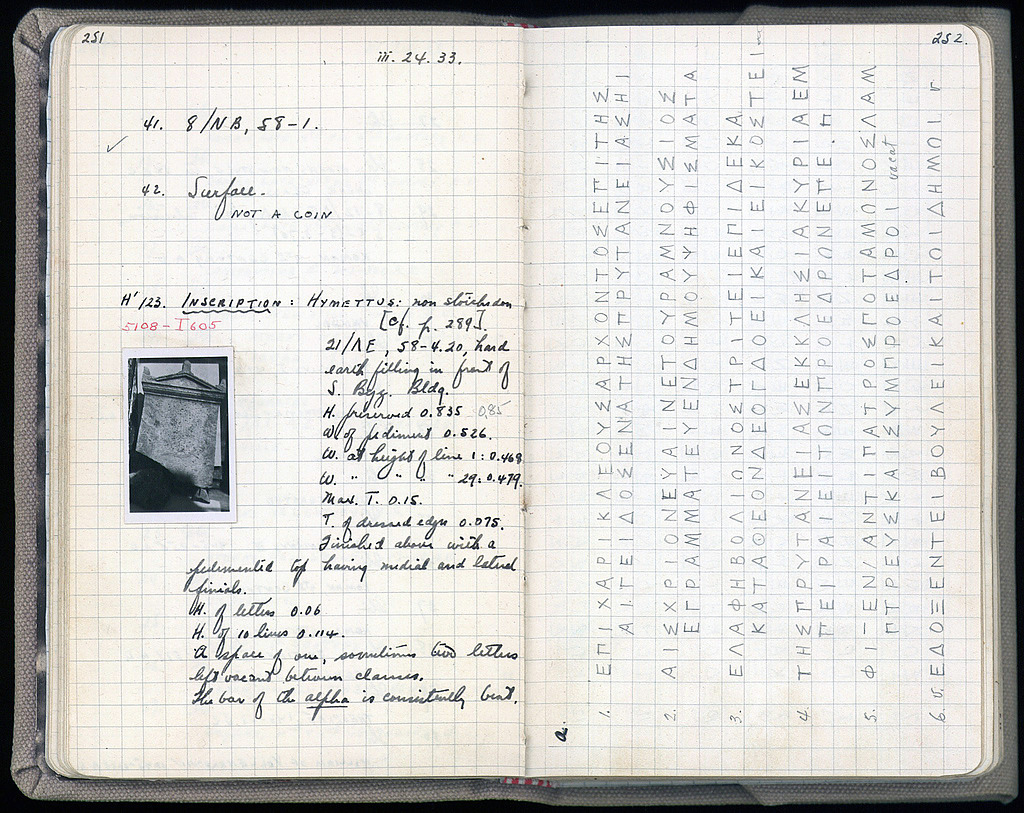 251
iii. 24. 33.
41. 8/NB, 58-1.
42. Surface.
NOT A COIN
H'123. INSCRIPTION: HYMETTUS: non stoichedon
5108 - I 605
[cf. p. 289].
21/ΛΕ, 58-4.20, hard
earth filling in front of
S. Byz. Bldg.
H. preserved 0.835 0.85
W. of pediment 0.526.
W. at height of line 1: 0.468
W. " " " " 29: 0.479.
Max. T. 0.15.
T. of dressed edge 0.075.
Finished above with a
pedimental top having medial and lateral
finials.
H. of letters 0.06
H. of 10 lines 0.114.
A space of one, sometimes two letters
left vacant between clauses.
The bar of the alpha is consistently bent.
252.
a.
1. ΕΠΙΧΑΡΙΚΛΕΟΥΣΑΡΧΟΝΤΟΣΕΠΙΤΗΣ
ΑΙΓΕΙΔΟΣΕΝΑΤΗΣΠΡΥΤΑΝΕΙΑΣΗΙ
2. ΑΙΣΧΡΙΩΝΕΥΑΙΝΕΤΟΥΡΑΜΝΟΥΣΙΟΣ
ΕΓΡΑΜΜΑΤΕΥΕΝΔΗΜΟΥΨΗΦΙΣΜΑΤΑ
3. ΕΛΑΦΗΒΟΛΙΩΝΟΣΤΡΙΤΕΙΕΠΙΔΕΚΑ
ΚΑΤΑΘΕΟΝΔΕΟΓΔΟΕΙΚΑΙΕΙΚΟΣΤΕΙ
4. ΤΗΣΠΡΥΤΑΝΕΙΑΣΕΚΚΛΗΣΙΑΚΥΡΙΑΕΜ
ΠΕΙΡΑΙΕΙΤΩΝΠΡΟΕΔΡΩΝΕΠΕ.Π
5. ΦΙΞΕΝ/ΑΝΤΙΠΑΤΡΟΣΠΟΤΑΜΩΝΟΣΛΑΜ
ΠΤΡΕΥΣΚΑΙΣΥΜΠΡΟΕΔΡΟΙ vacat
6. v. ΕΔΟΞΕΝΤΕΙΒΟΥΛΕΙΚΑΙΤΩΙΔΗΜΩΙ v